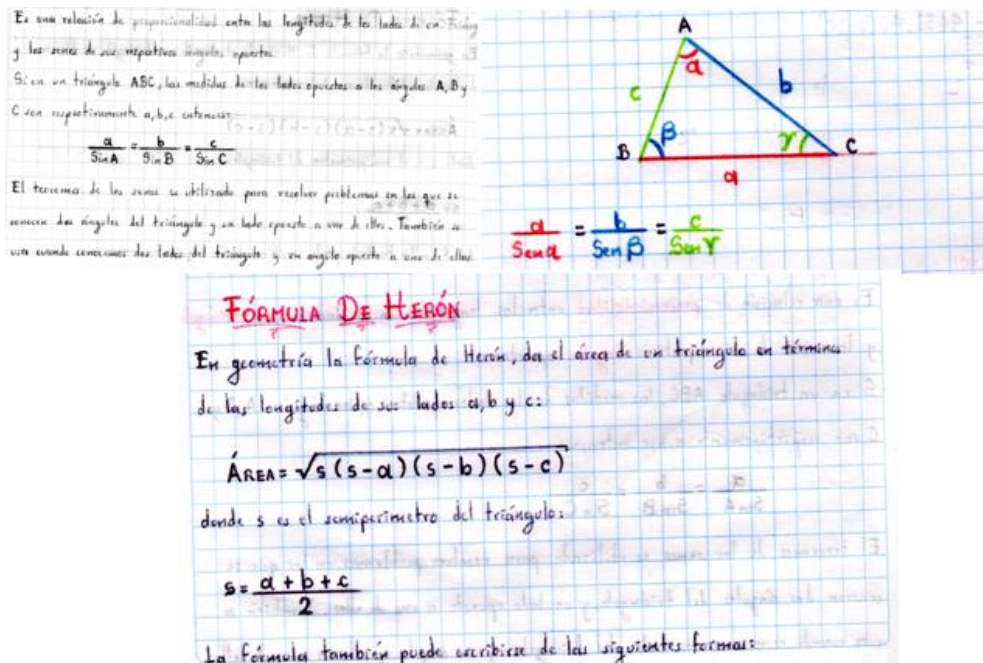 Es una relación de proporcionalidad entre las longitudes de los lados de un
y los senos de sus respectivos ángulos opuestos.
Si en un triángulo ABC, las medidas de los lados opuestos a los ángulos A, B y
C son respectivamente a, b, c entonces:
a/SinA = b/SinB = c/SinC
El teorema de los senos es utilizado para resolver problemas en los que se
conocen dos ángulos del triángulo y un lado opuesto a uno de ellos. También se
usa cuando conocemos dos lados del triángulo y un ángulo opuesto a uno de ellos.
A
α
c
b
B
β
γ
C
a
a/Senα = b/Senβ = c/Senγ
FÓRMULA DE HERÓN
En geometría la Fórmula de Herón, da el área de un triángulo en términos
de las longitudes de sus lados a, b y c:
ÁREA = √s(s-a)(s-b)(s-c)
donde s es el semiperimetro del triángulo:
s = a+b+c/2
La fórmula también puede escribirse de las siguientes formas: